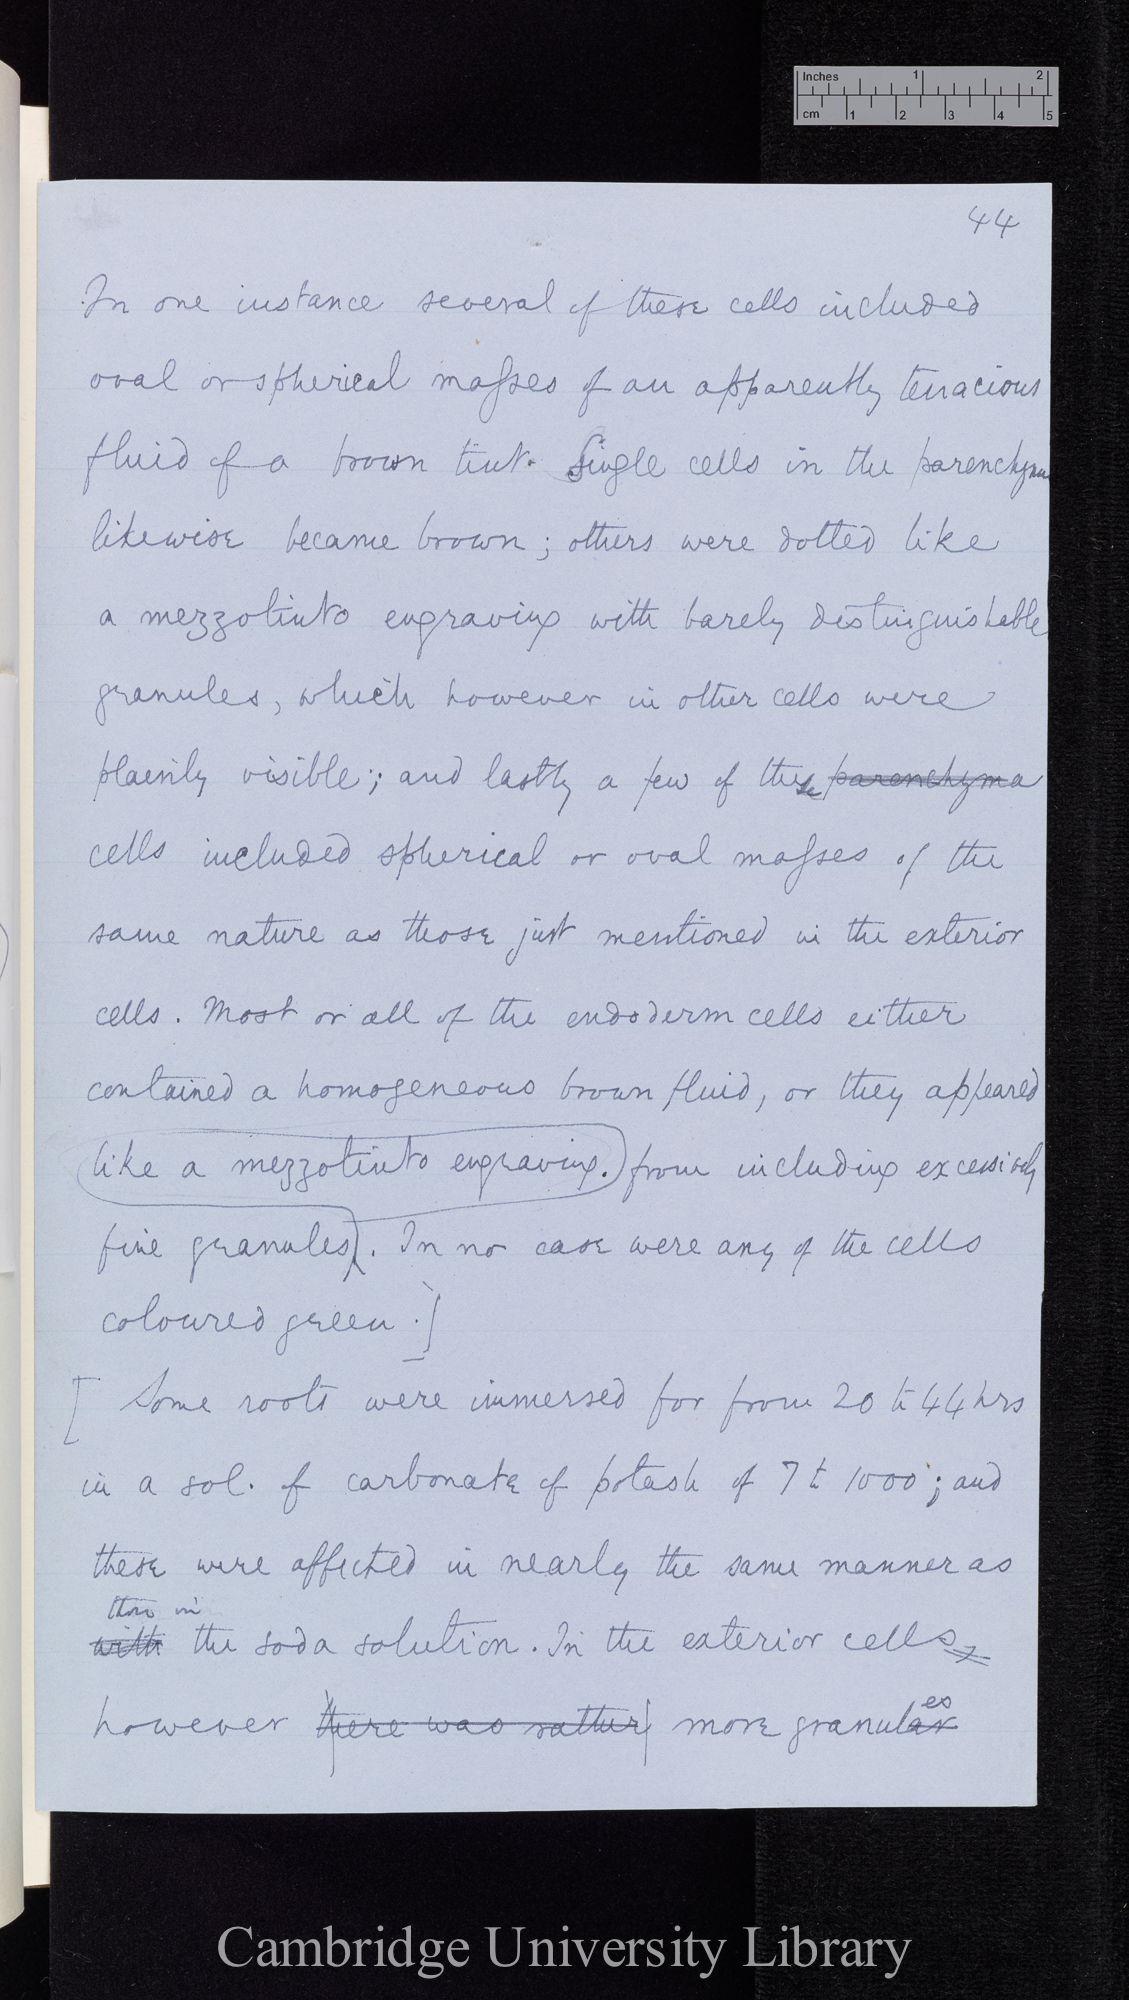 Inches 1 2
cm 1 2 3 4 5
44
In one instance several of these cells included
oval or spherical masses of an apparently tenacious
fluid of a brown tint. Single cells in the parenchyma
likewise became brown; others were dotted like
a mezzotinto engraving with barely distinguishable
granules, which however in other cells were
plainly visible; and lastly a few of these parenchyma
cells included spherical or oval masses of the
same nature as those just mentioned in the exterior
cells. Most or all of the endoderm cells either
contained a homogeneous brown fluid, or they appeared
like a mezzotinto engraving. from including excessively
fine granules). In no case were any of the cells
coloured green.]
[ Some roots were immersed for from 20 to 44 hrs
in a sol. of carbonate of potash of 7 to 1000; and
these were affected in nearly the same manner as
those in
with the soda solution. In the exterior cells,
however there was rather more granular
es
Cambridge University Library